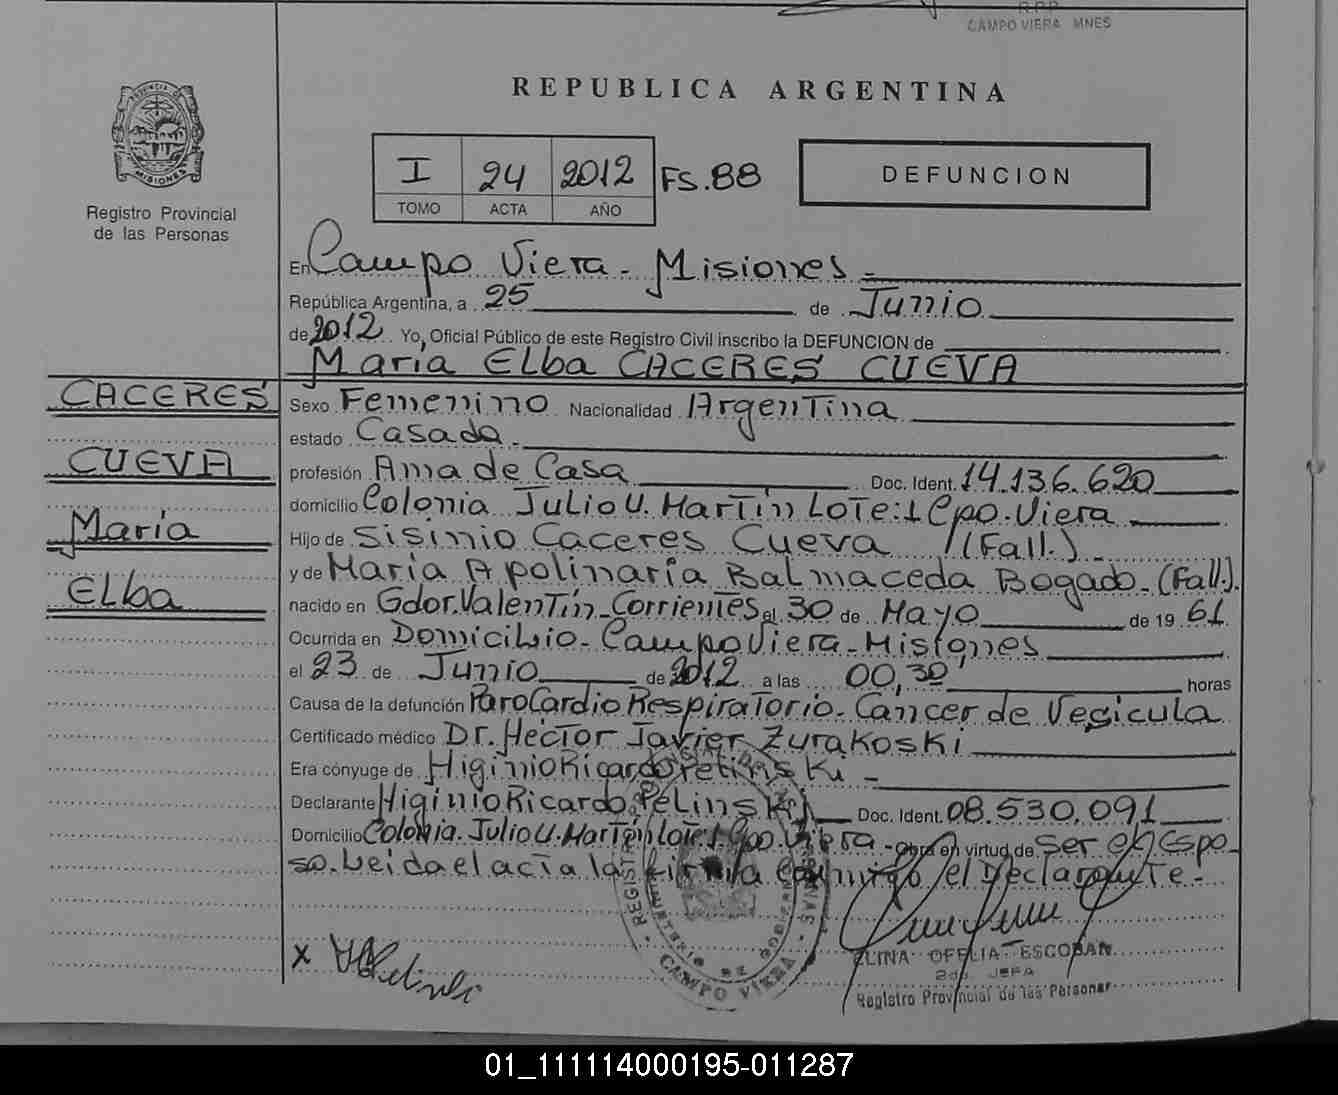 R.P.P.
CAMPO VIERA MNES
REPUBLICA ARGENTINA
PROVINCIA DE
MISIONES
Registro Provincial
de las Personas
I 24 2012 FS.88
TOMO ACTA AÑO
DEFUNCION
En Campo Viera - Misiones -
República Argentina, a 25 de Junio
de 2012 Yo, Oficial Público de este Registro Civil inscribo la DEFUNCION de
María Elba CACERES CUEVA
CACERES
CUEVA
María
Elba
Sexo Femenino Nacionalidad Argentina
estado Casada -
profesión Ama de Casa Doc. Ident. 14.136.620
domicilio Colonia Julio U. Martín Lote:1 Cpo. Viera
Hijo de Sisinio Caceres Cueva (Fall.) -
y de María Apolinaria Balmaceda Bogado - (Fall.).
nacido en Gdor. Valentín - Corrientes el 30 de Mayo de 19 61.
Ocurrida en Domicilio - Campo Viera - Misiones
el 23 de Junio de 2012 a las 00,30 horas
Causa de la defunción Paro Cardio Respiratorio - Cancer de Vesicula
Certificado médico Dr. Héctor Javier Zurakoski
Era cónyuge de Higinio Ricardo Pelinski -
Declarante Higinio Ricardo Pelinski Doc. Ident. 08.530.091
Domicilio Colonia Julio U. Martín Lote 1 Cpo. Viera - Obra en virtud de ser el Espo-
so. Leida el acta la firma conmigo el Declarante -
REGISTRO PROVINCIAL DE LAS PERSONAS
MINISTERIO DE GOBIERNO
CAMPO VIERA
x HRPelinski
ELINA OFELIA ESCOBAR
2da. JEFA
Registro Provincial de las Personas
01_111114000195-011287